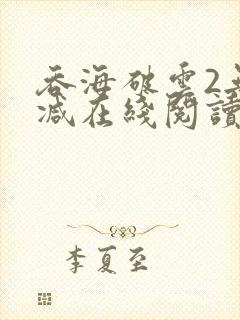 吞海破雲2無
減在綫閱讀
李夏至